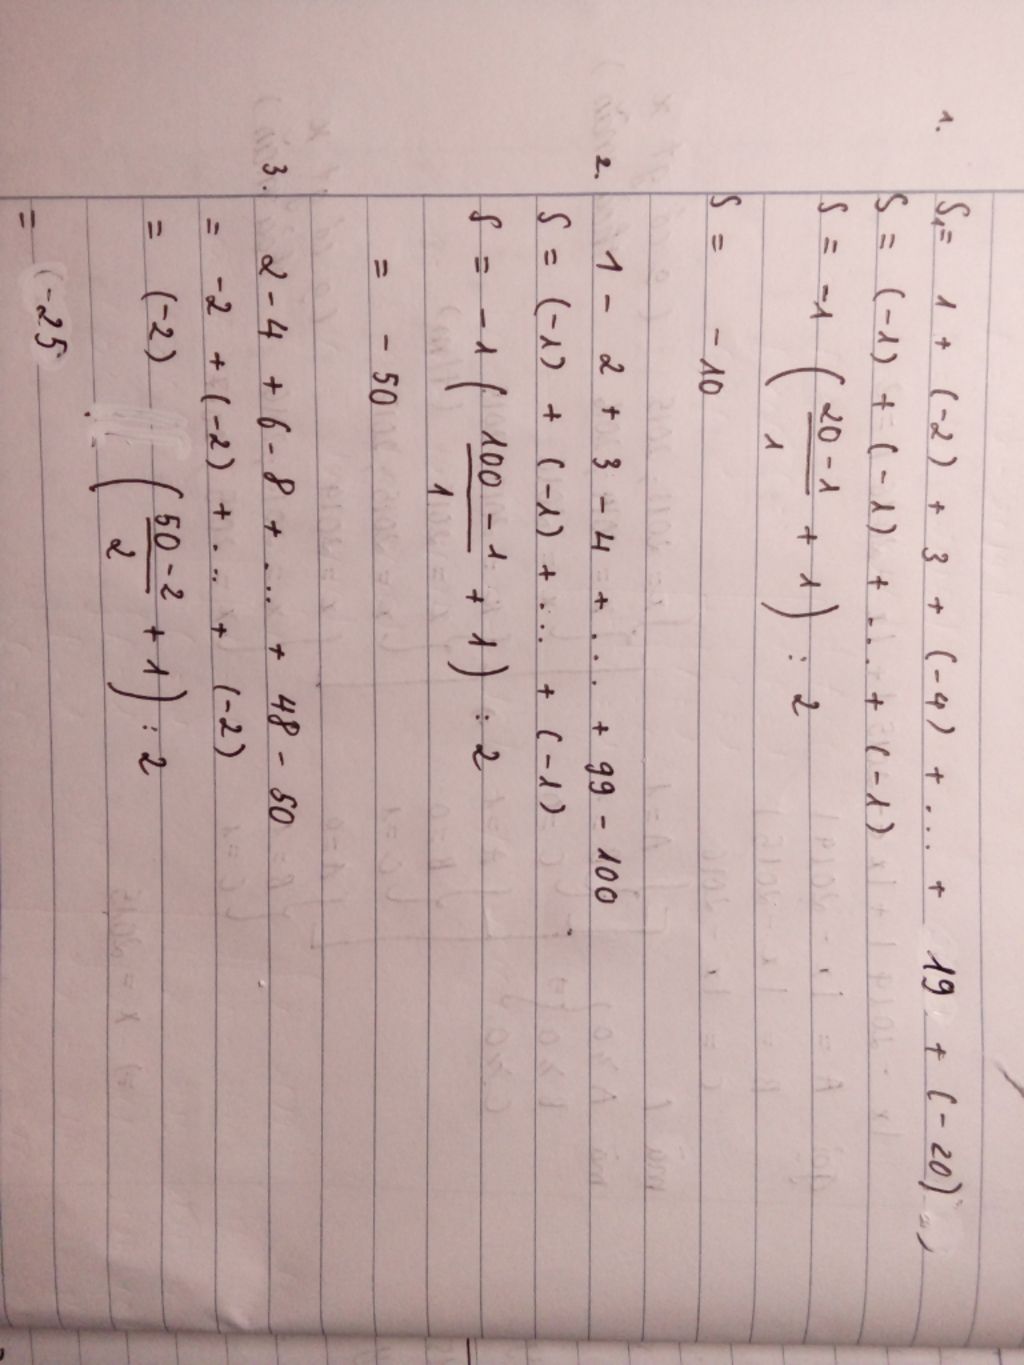 1. S₁= 1 + (-2) + 3 + (-4) + ... + 19 + (-20)
S = (-1) + (-1) + ... + (-1)
S = -1 ( 20-1
1 + 1 ) : 2
S = -10
2. 1 - 2 + 3 - 4 + ... + 99 - 100
S = (-1) + (-1) + ... + (-1)
S = -1 ( 100 - 1
1 + 1 ) : 2
= - 50
3. 2 - 4 + 6 - 8 + ... + 48 - 50
= -2 + (-2) + ... + (-2)
= (-2) ( 50-2
2 + 1 ) : 2
= (-25